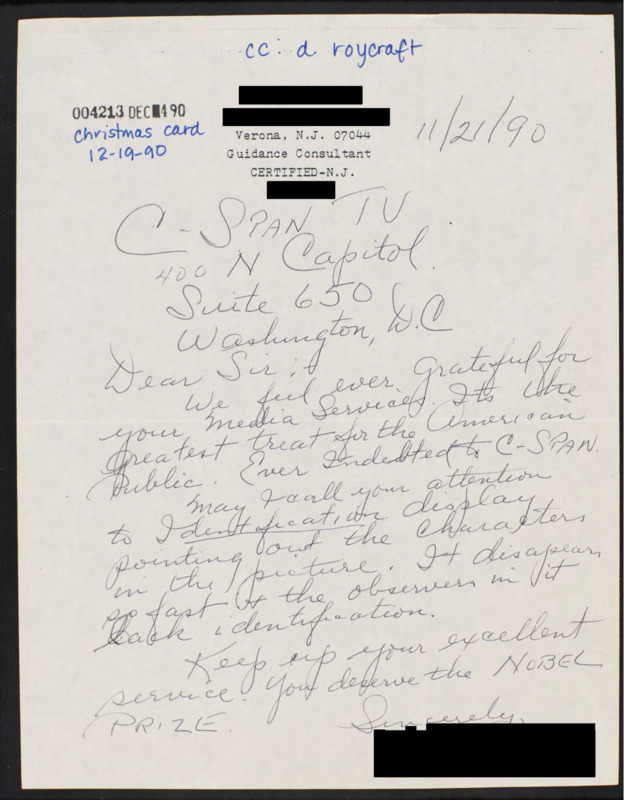 cc: d roycraft
004213 DEC 4 90
christmas card
12-19-90
Verona, N.J. 07044
Guidance Consultant
CERTIFIED-N.J.
11/21/90
C-SPAN TV
400 N Capitol.
Suite 650
Washington, D.C
Dear Sir:
We feel ever grateful for
your Media Services. Its the
greatest treat for the American
public. Ever Indebted to C-SPAN.
May I call your attention
to Identification display
pointing out the characters
in the picture. It disapears
so fast & the observers in it
lack identification.
Keep up your excellent
service. You deserve the NOBEL
PRIZE.
Sincerely,